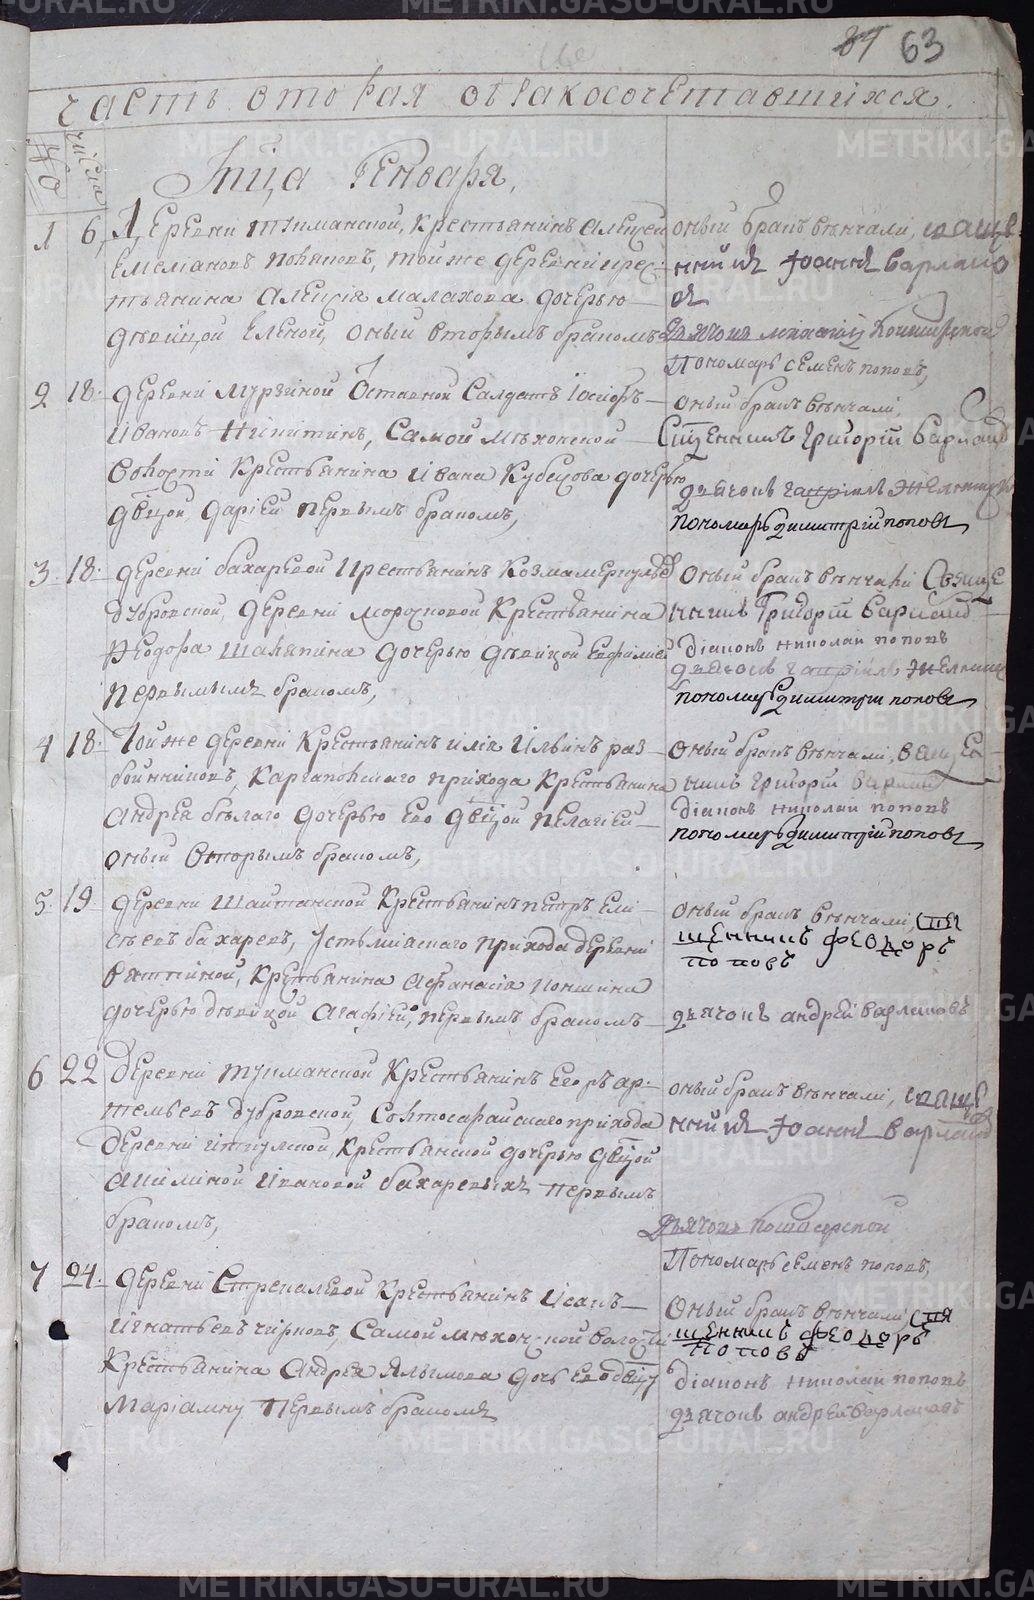 63
часть вторая обракосочетавшихся.
№
числа
мца Генваря,
1 6 Деревни туманской, крестьянинъ Алексей
Емелиановъ, тойже деревни крес-
тьянина Алексія Малахова дочерью
девицой Еленой, оный вторымъ бракомъ
оный бракъ венчали, свяще
нникъ Іоаннъ Варлако
въ
Дьячокъ
Пономарь Семенъ поповъ,
2 18. деревни Мурзиной Отставной Салдатъ Іосифъ
Ивановъ Никитинъ, Самой Мехонской
Волости крестьянина Ивана Кубасова дочерью
двцой Даріей первымъ бракомъ,
оный бракъ венчали,
Сщенникъ Григорій Варлаковъ
дьячокъ гавріилъ
пономарь димитрій поповъ
3. 18. деревни бахаревой крестьянинъ Козма
дубровской, деревни Крестьянина
Феодора Шаляпина дочерью девицой Евфиміей
первымъ бракомъ,
Оный бракъ венчали Свяще
нникъ Григорій Варлаков
діаконъ николай поповъ
дьячокъ гавріилъ
пономарь димитрій поповъ
4 18. Тойже деревни Крестьянинъ Илія Ильинъ раз-
бойниковъ, Каргапольскаго прихода Крестьянина
Андрея белаго дочерью его двцой пелагіей
оный вторымъ бракомъ,
оный бракъ венчали, свяще
нникъ Григорій Варлаков
діаконъ николай поповъ
пономарь димитрій поповъ
5. 19 деревни Шайтанской Крестьянинъ петръ Ели
сеевъ бахаревъ, Устьміяскаго прихода деревни
вяткиной, Крестьянина Афанасія Кокшина
дочерью девицой Агафіей, первымъ бракомъ
оный бракъ венчали, свя
щенникъ феодоръ
поповъ
дьячокъ андрей варлаковъ
6 22 Деревни туманской Крестьянинъ Егоръ ар-
темьевъ дубровской, Солтосарайскаго прихода
деревни Крестьянской дочерью двцой
Акилиной Ивановой бахаревыхъ первымъ
бракомъ,
оный бракъ венчали, свяще
нникъ Іоаннъ Варлаковъ
Дьячокъ
Пономарь семенъ поповъ,
7 24. деревни Стрекаловой Крестьянинъ Исакъ
Игнатьевъ чирковъ, Самой мехонской волости
Крестьянина Андрея Ялымова дочь его двцу
Маріамну Первымъ бракомъ
Оный бракъ венчали, свя
щенникъ феодоръ
поповъ
діаконъ николай поповъ
дьячокъ андрей варлаковъ
METRIKI.GASO-URAL.RU